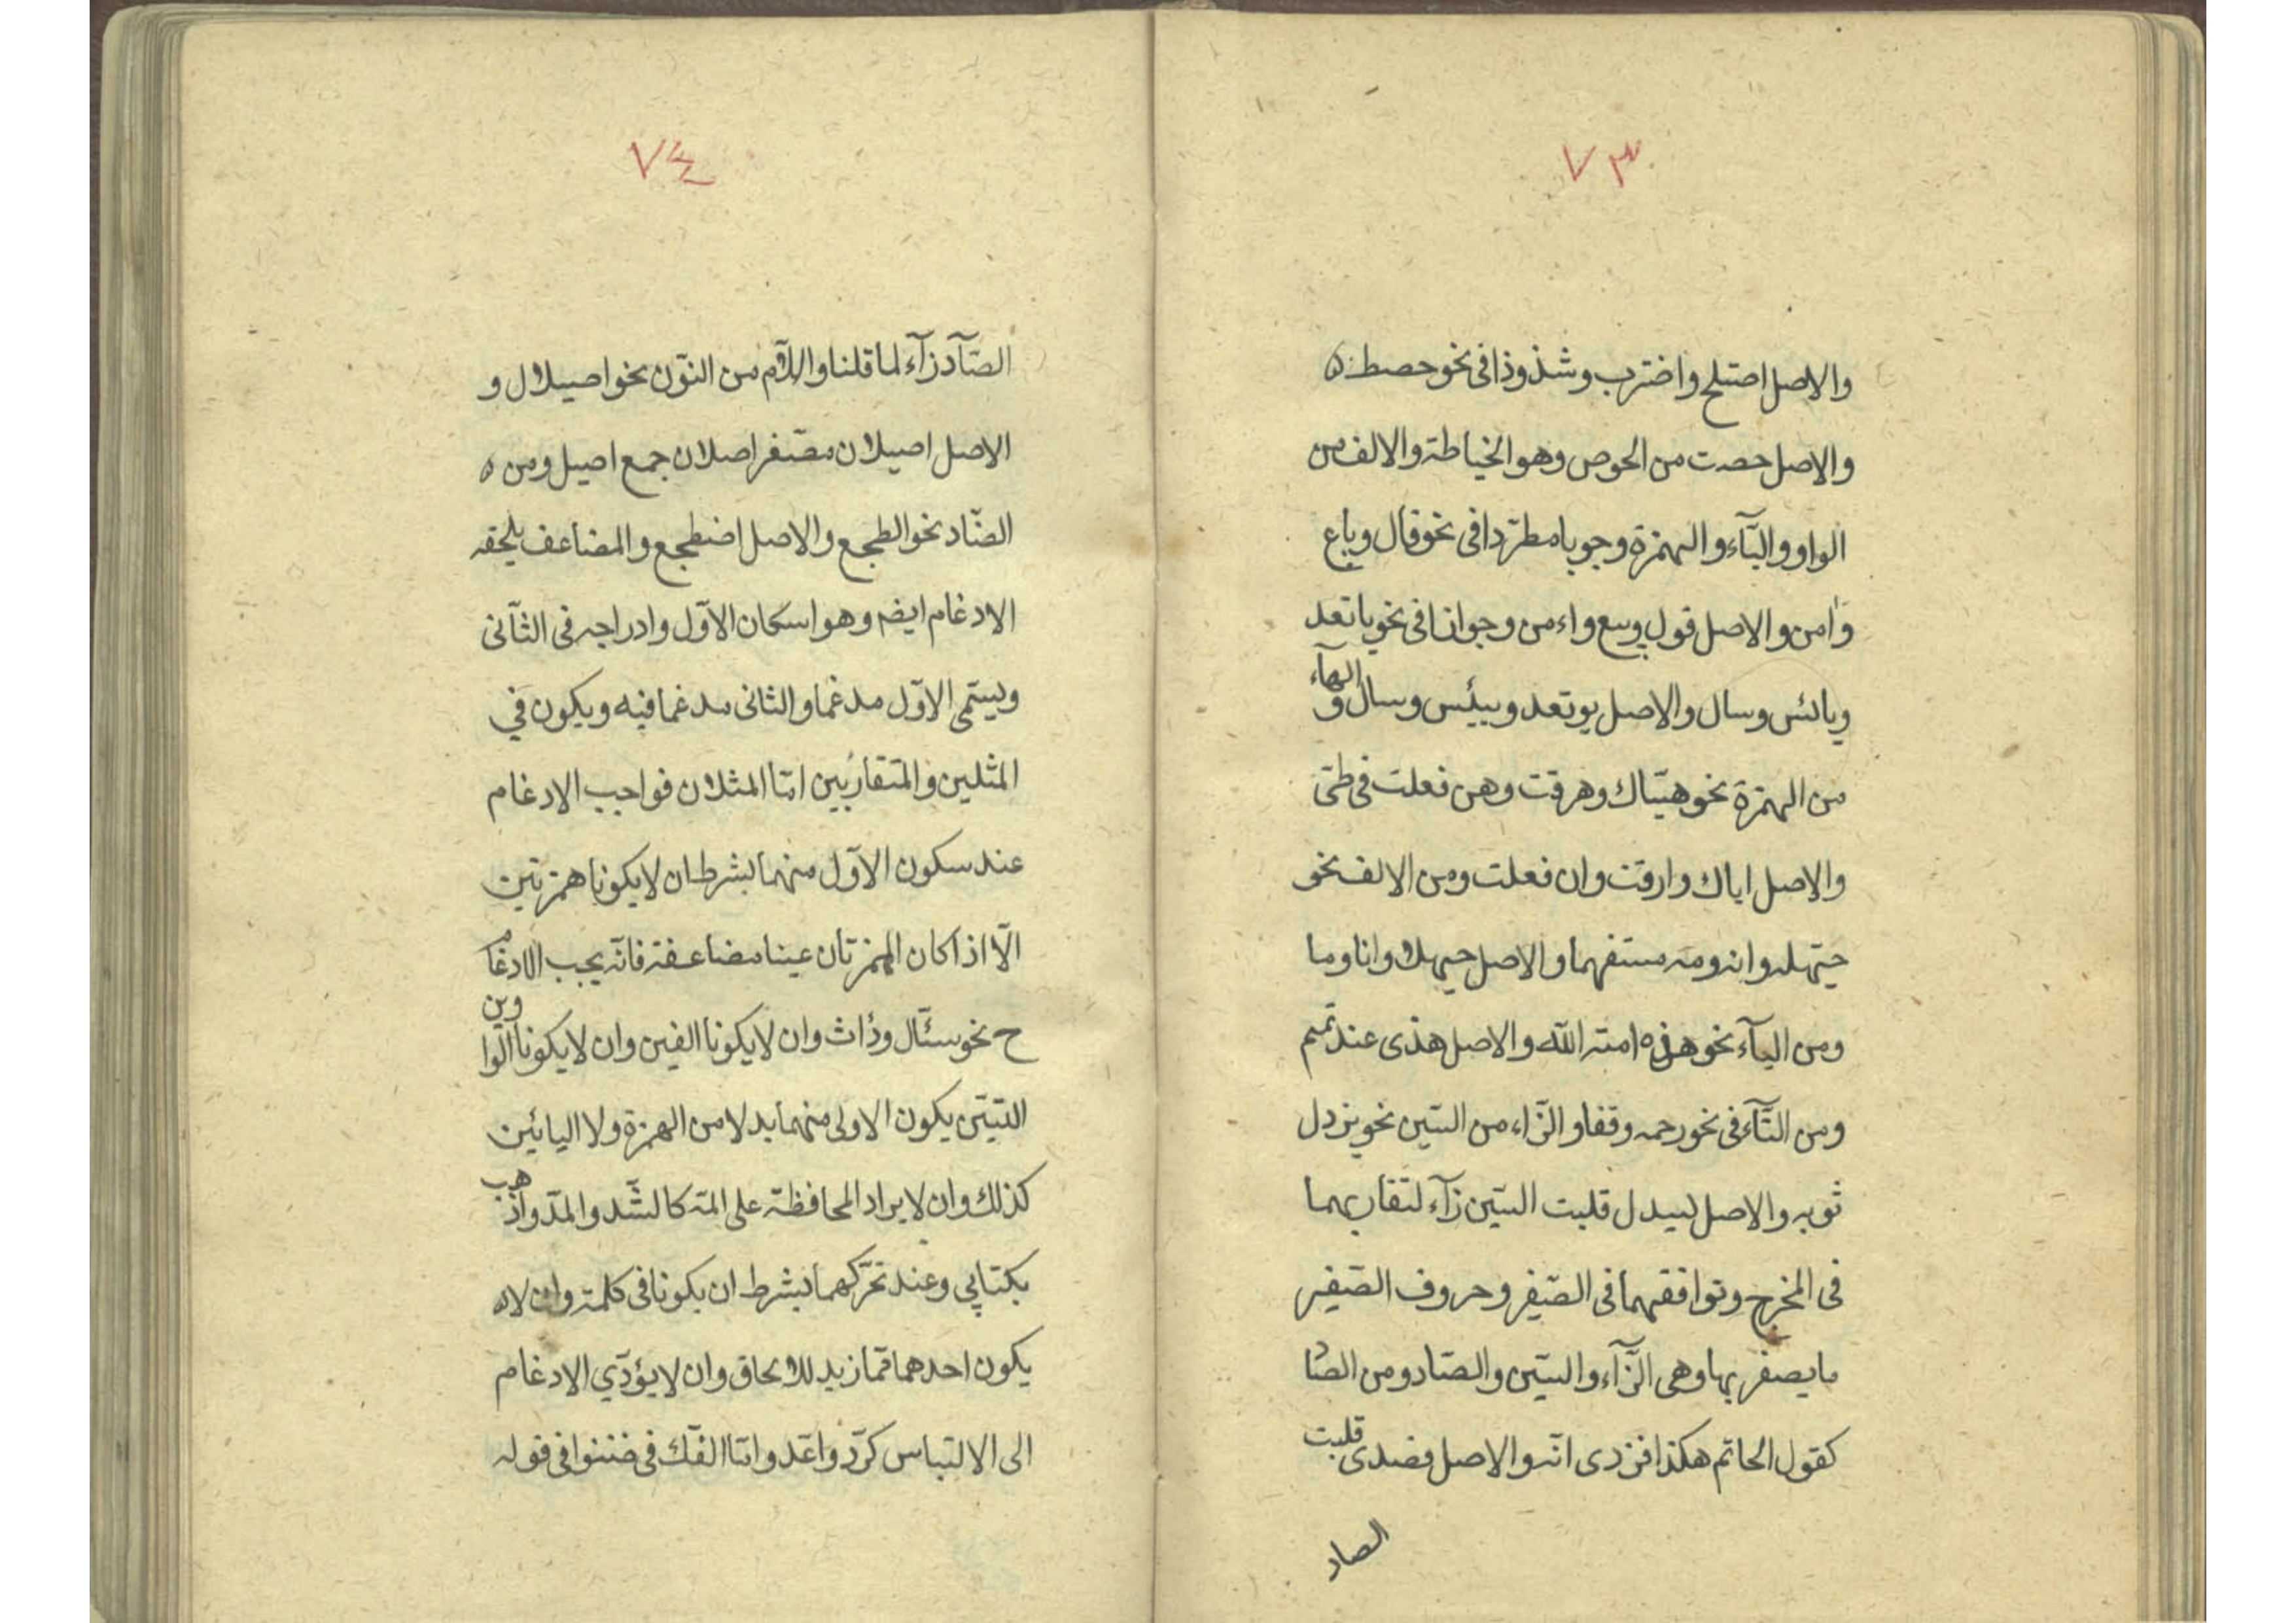 ٧٣
والاصل اصتلح واضترب وشذوذا في نحو حصط ه
والاصل حصت من الحوص وهو الخياطة والالف من
الواو واليآء والهمزة وجوبا مطرّدا في نحو قال وباع
وامن والاصل قول وبيع واءمن وجوازا في نحو ياتعد
ويائس وسال والاصل يوتعد وييئس وسال و الهآء
من الهمزة نحو هيّاك وهرقت وهن فعلت في طىّ
والاصل اياك وارقت وان فعلت ومن الالف نحو
حيّهله وانه ومه مستفهما والاصل حيهلا وانا وما
ومن اليآء نحو هذه امة الله والاصل هذى عند تميم
ومن التآء في نحو رحمه وقفا والزّاء من السّين نحو يزدل
ثوبه والاصل ليسدل قلبت السّين زآء لتقاربهما
في المخرج وتوافقهما في الصّفير وحروف الصّفير
ما يصفر بها وهى الزّآء والسّين والصّاد ومن الصّا
كقول الحاتم هكذا فزدى انّه والاصل فصدى قلبت
الصاد
٧٤
الصّآد زآء لما قلنا واللّام من النّون نحو اصيلال و
الاصل اصيلان مصّغر اصلان جمع اصيل ومن ه
الضّاد نحو الطجع والاصل اضطجع والمضاعف يلحقه
الادغام ايضه وهو اسكان الاوّل وادراجه في الثّانى
ويسمّى الاوّل مدغما والثانى مدغما فيه ويكون في
المثلين والمتقاربين امّا المثلان فواجب الادغام
عند سكون الاوّل منهما بشرط ان لا يكونا همزتين
الّا اذا كان الهمزتان عينا مضاعفة فانّه يجب الادغام
ح نحو سئّال ودأث وان لا يكونا الفين وان لا يكونا الواوين
اللتيّن يكون الاولى منهما بدلا من الهمزة ولا اليائين
كذلك وان لا يراد المحافظة على المدّ كالشّد والمدّ واذهب
بكتابي وعند تحرّكهما بشرط ان يكونا في كلمة وان لا ه
يكون احدهما ممّا زيد للالحاق وان لا يؤدّي الادغام
الى الالتباس كردّ واعدّ وامّا الفكّ في ضننوا في قوله